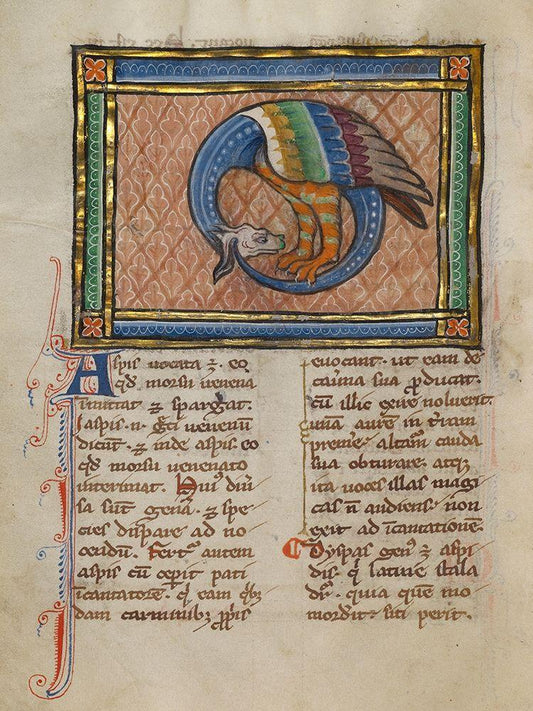 Aspis uocata ē. eo
qđ morsu uenena
inmittat ⁊ spargat.
Iaspis .n. ḡci uenenū
dicunt. ⁊ inde aspis. eo
qđ morsu uenenato
interimat. Huiꝰ diū
sa sunt genā. ⁊ spe
cies dispare ad no
cendū. Fertꝰ autem
aspis cū ceperit pati
īcantatorē. qͥ eam qͥbꝫ
dam carminibꝫ ꝓpͥis
euocant. ut eam de
cauīna sua ꝓducat.
cū illic noluerit
unā aurē in t̄ram
premē. altam̄ cauda
sua obturare. atqꝫ
ita uoces illas magi
cas n̄ audiens. non
exit ad īcantationē.
Dyspas genꝰ ē aspi
dis. qͥ latine
dr̄. quia quē mo
mordit. siti perit.